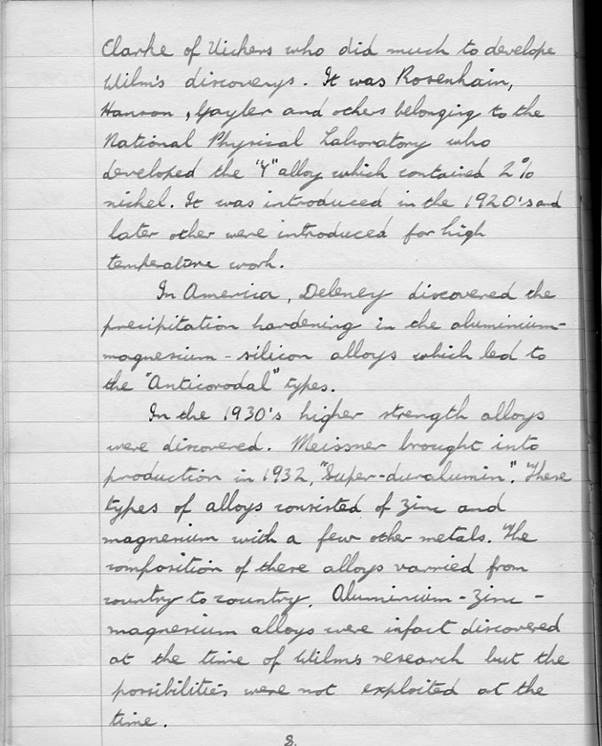 Clarke of Vickers who did much to develope
Wilm's discoverys. It was Rosenhain,
Hanson, Gayler and others belonging to the
National Physical Laboratory who
developed the "Y" alloy which contained 2%
nickel. It was introduced in the 1920's and
later other were introduced for high
temperature work.
In America, Deleney discovered the
precipitation hardening in the aluminium-
magnesium - silicon alloys which led to
the "Anticorodal" types.
In the 1930's higher strength alloys
were discovered. Meissner brought into
production in 1932, "Super-duralumin". These
types of alloys consisted of zinc and
magnesium with a few other metals. The
composition of these alloys varried from
country to country. Aluminium - Zinc -
magnesium alloys were infact discovered
at the time of Wilms research but the
possibilities were not exploited at the
time.
8.